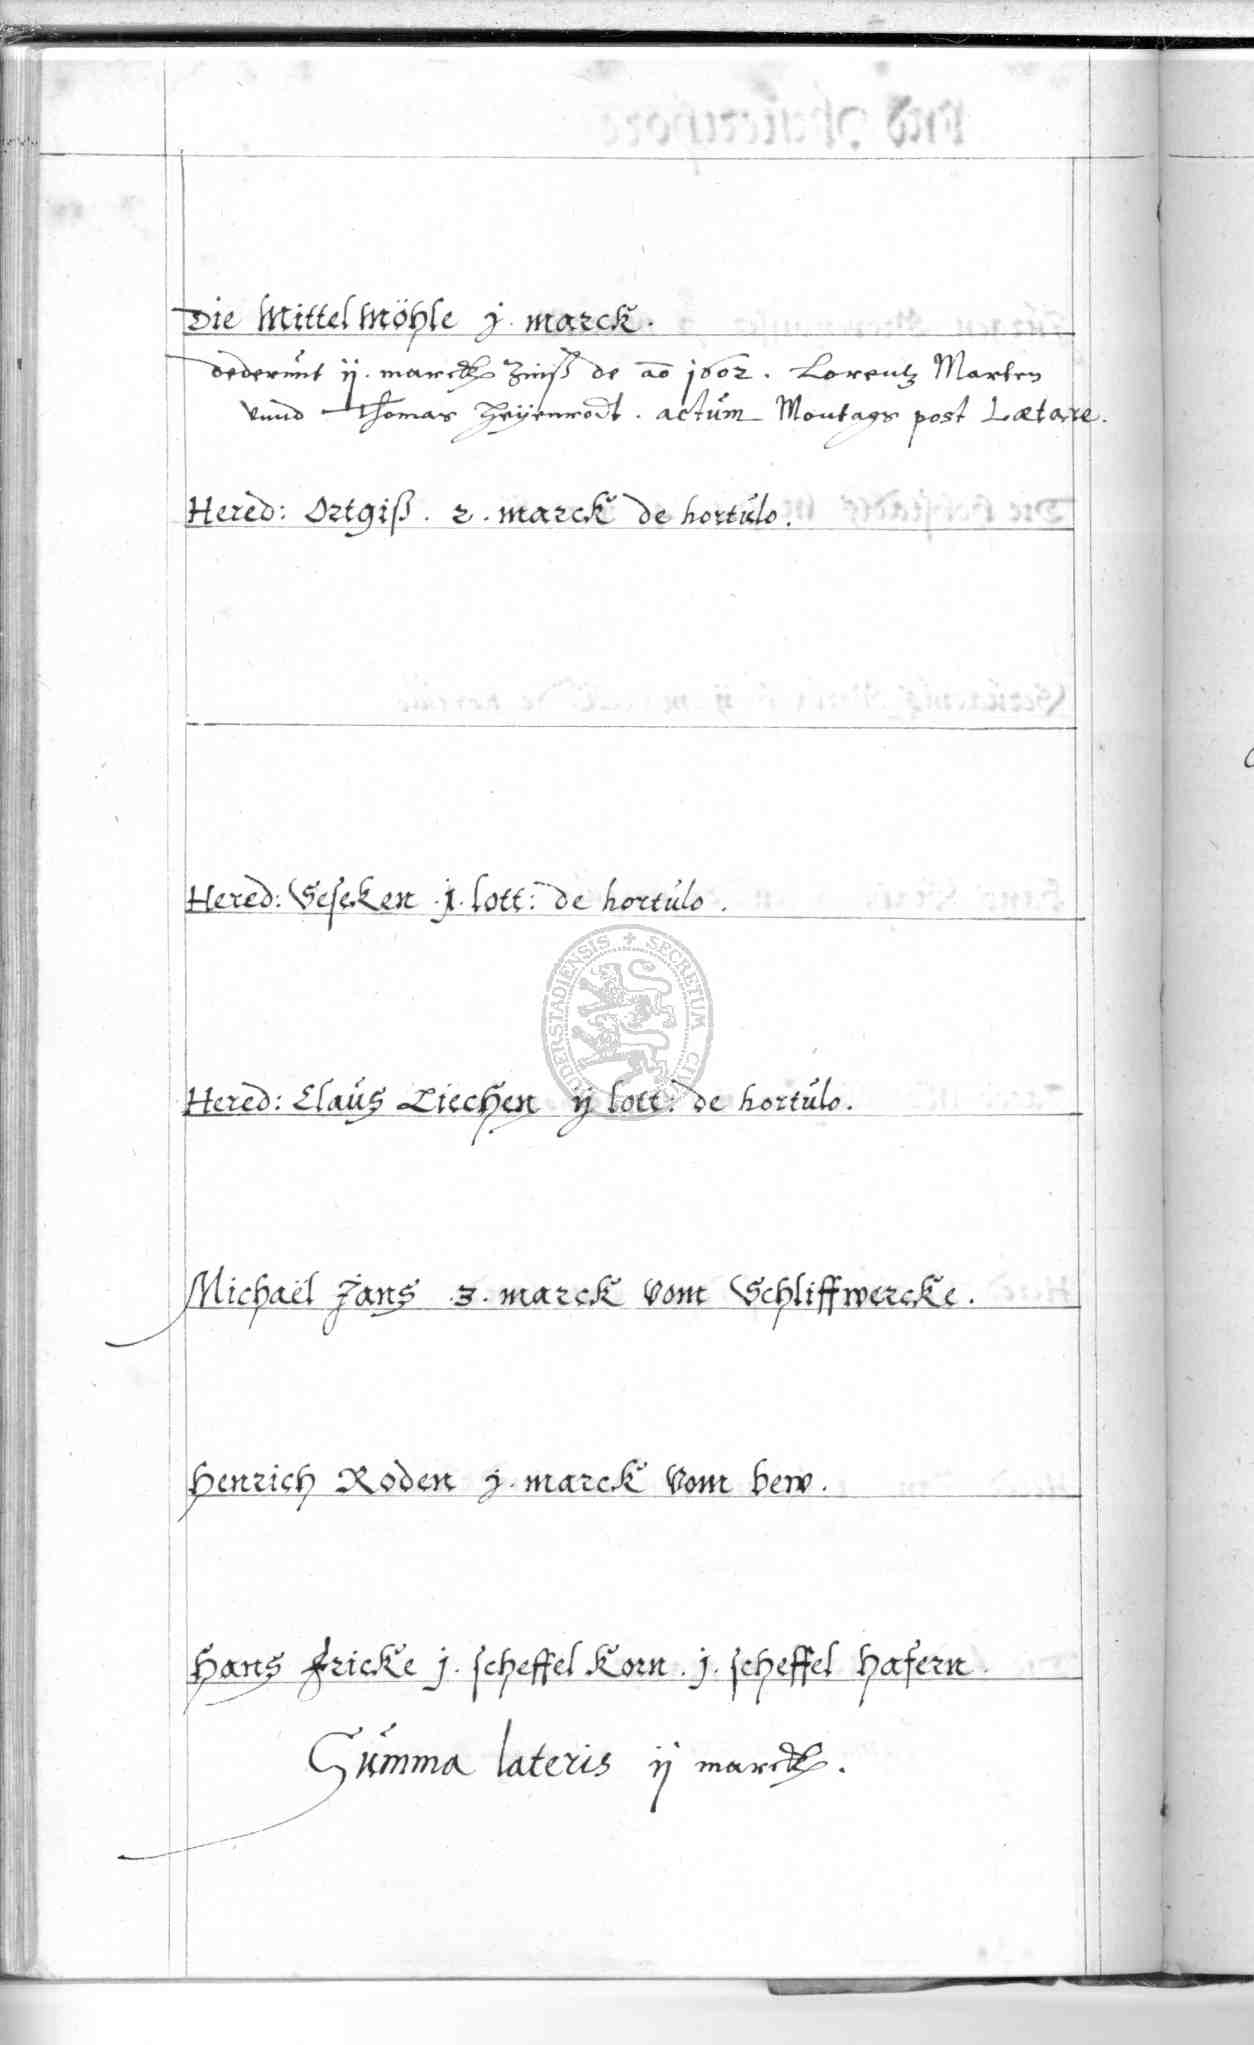 Die Mittel Möhle j. marck.
dederunt ij. marck Zinß de ao 1602. Lorentz Marten
vnnd Thomas Heÿenrodt. actum Montags post Lætare.
Hered: Ortgiß. 2. marck de hortulo.
Hered: Seseken .j. lott: de hortulo.
Hered: Claus Ziechen ij lott: de hortulo.
Michaël Jans .3. marck vom Schliffwercke.
Henrich Roden j. marck vom bew.
Hans Fricke j. scheffel Korn. j. scheffel hafern.
Summa lateris ij marck.
SECRETUM